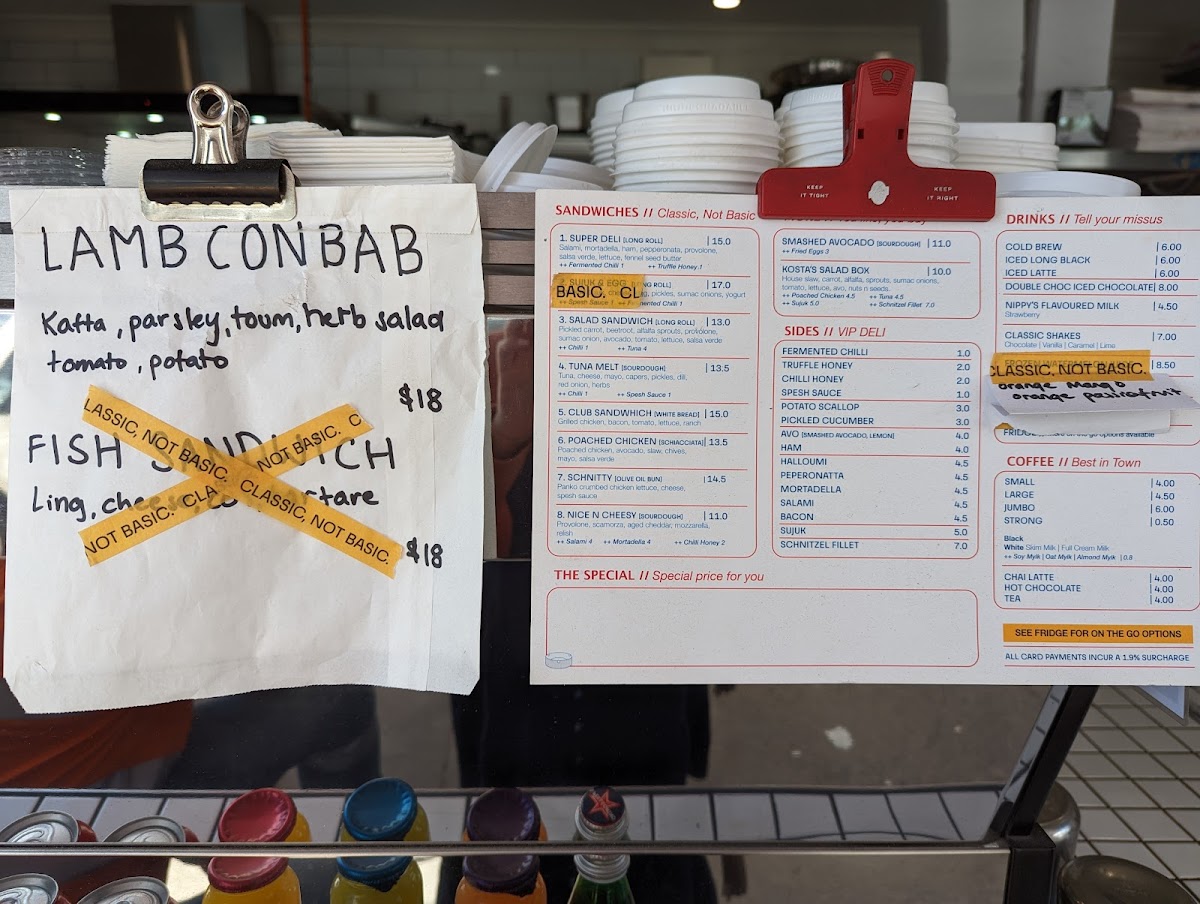 LAMB CONBAB
Kafta, parsley, toum, herb salad
tomato, potato
$18
FISH SANDWICH
Ling, cheese, tartare
$18
LASSIC, NOT BASIC.
CLASSIC, NOT BASIC.
NOT BASIC. CLA
NOT BASIC. C
KEEP IT TIGHT
KEEP IT RIGHT
SANDWICHES // Classic, Not Basic
1. SUPER DELI [LONG ROLL] | 15.0
Salami, mortadella, ham, pepperonata, provolone,
salsa verde, lettuce, fennel seed butter
++ Fermented Chilli 1 ++ Truffle Honey 1
2. SUJUK & EGG [LONG ROLL] | 17.0
pickles, sumac onions, yogurt
++ Spesh Sauce 1 ++ Fermented Chilli 1
BASIC. CL
3. SALAD SANDWICH [LONG ROLL] | 13.0
Pickled carrot, beetroot, alfalfa sprouts, provolone,
sumac onion, avocado, tomato, lettuce, salsa verde
++ Chilli 1 ++ Tuna 4
4. TUNA MELT [SOURDOUGH] | 13.5
Tuna, cheese, mayo, capers, pickles, dill,
red onion, herbs
++ Chilli 1 ++ Spesh Sauce 1
5. CLUB SANDWICH [WHITE BREAD] | 15.0
Grilled chicken, bacon, tomato, lettuce, ranch
6. POACHED CHICKEN [SCHIACCIATA] | 13.5
Poached chicken, avocado, slaw, chives,
mayo, salsa verde
7. SCHNITTY [OLIVE OIL BUN] | 14.5
Panko crumbed chicken lettuce, cheese,
spesh sauce
8. NICE N CHEESY [SOURDOUGH] | 11.0
Provolone, scamorza, aged cheddar, mozzarella,
relish
++ Salami 4 ++ Mortadella 4 ++ Chilli Honey 2
THE SPECIAL // Special price for you
SMASHED AVOCADO [SOURDOUGH] | 11.0
++ Fried Eggs 3
KOSTA'S SALAD BOX | 10.0
House slaw, carrot, alfalfa, sprouts, sumac onions,
tomato, lettuce, avo, nuts n seeds.
++ Poached Chicken 4.5 ++ Tuna 4.5
++ Sujuk 5.0 ++ Schnitzel Fillet 7.0
SIDES // VIP DELI
FERMENTED CHILLI 1.0
TRUFFLE HONEY 2.0
CHILLI HONEY 2.0
SPESH SAUCE 1.0
POTATO SCALLOP 3.0
PICKLED CUCUMBER 3.0
AVO [SMASHED AVOCADO, LEMON] 4.0
HAM 4.0
HALLOUMI 4.5
PEPERONATTA 4.5
MORTADELLA 4.5
SALAMI 4.5
BACON 4.5
SUJUK 5.0
SCHNITZEL FILLET 7.0
DRINKS // Tell your missus
COLD BREW | 6.00
ICED LONG BLACK | 6.00
ICED LATTE | 6.00
DOUBLE CHOC ICED CHOCOLATE | 8.00
NIPPY'S FLAVOURED MILK | 4.50
Strawberry
CLASSIC SHAKES | 7.00
Chocolate | Vanilla | Caramel | Lime
FROZEN WATERMELON | 8.50
CLASSIC, NOT BASIC.
orange Mango
orange passionfruit
FRIDGE
options available
COFFEE // Best in Town
SMALL | 4.00
LARGE | 4.50
JUMBO | 6.00
STRONG | 0.50
Black
White Skim Milk | Full Cream Milk
++ Soy Mylk | Oat Mylk | Almond Mylk | 0.8
CHAI LATTE | 4.00
HOT CHOCOLATE | 4.00
TEA | 4.00
SEE FRIDGE FOR ON THE GO OPTIONS
ALL CARD PAYMENTS INCUR A 1.9% SURCHARGE